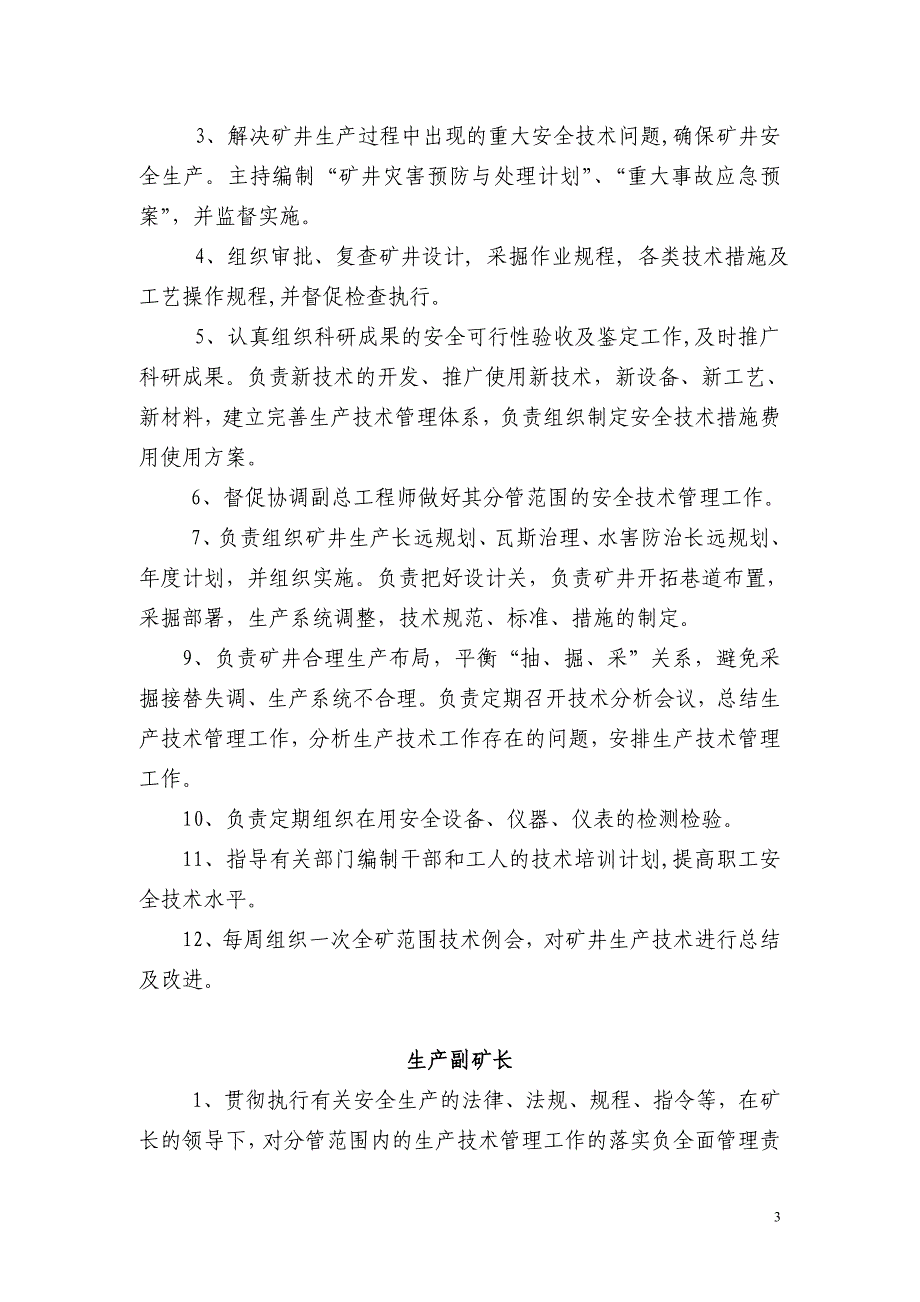 3、解决矿井生产过程中出现的重大安全技术问题,确保矿井安
全生产。主持编制“矿井灾害预防与处理计划”、“重大事故应急预
案”，并监督实施。
4、组织审批、复查矿井设计，采掘作业规程，各类技术措施及
工艺操作规程,并督促检查执行。
5、认真组织科研成果的安全可行性验收及鉴定工作,及时推广
科研成果。负责新技术的开发、推广使用新技术，新设备、新工艺、
新材料，建立完善生产技术管理体系，负责组织制定安全技术措施费
用使用方案。
6、督促协调副总工程师做好其分管范围的安全技术管理工作。
7、负责组织矿井生产长远规划、瓦斯治理、水害防治长远规划、
年度计划，并组织实施。负责把好设计关，负责矿井开拓巷道布置，
采掘部署，生产系统调整，技术规范、标准、措施的制定。
9、负责矿井合理生产布局，平衡“抽、掘、采”关系，避免采
掘接替失调、生产系统不合理。负责定期召开技术分析会议，总结生
产技术管理工作，分析生产技术工作存在的问题，安排生产技术管理
工作。
10、负责定期组织在用安全设备、仪器、仪表的检测检验。
11、指导有关部门编制干部和工人的技术培训计划,提高职工安
全技术水平。
12、每周组织一次全矿范围技术例会，对矿井生产技术进行总结
及改进。
生产副矿长
1、贯彻执行有关安全生产的法律、法规、规程、指令等，在矿
长的领导下，对分管范围内的生产技术管理工作的落实负全面管理责
3